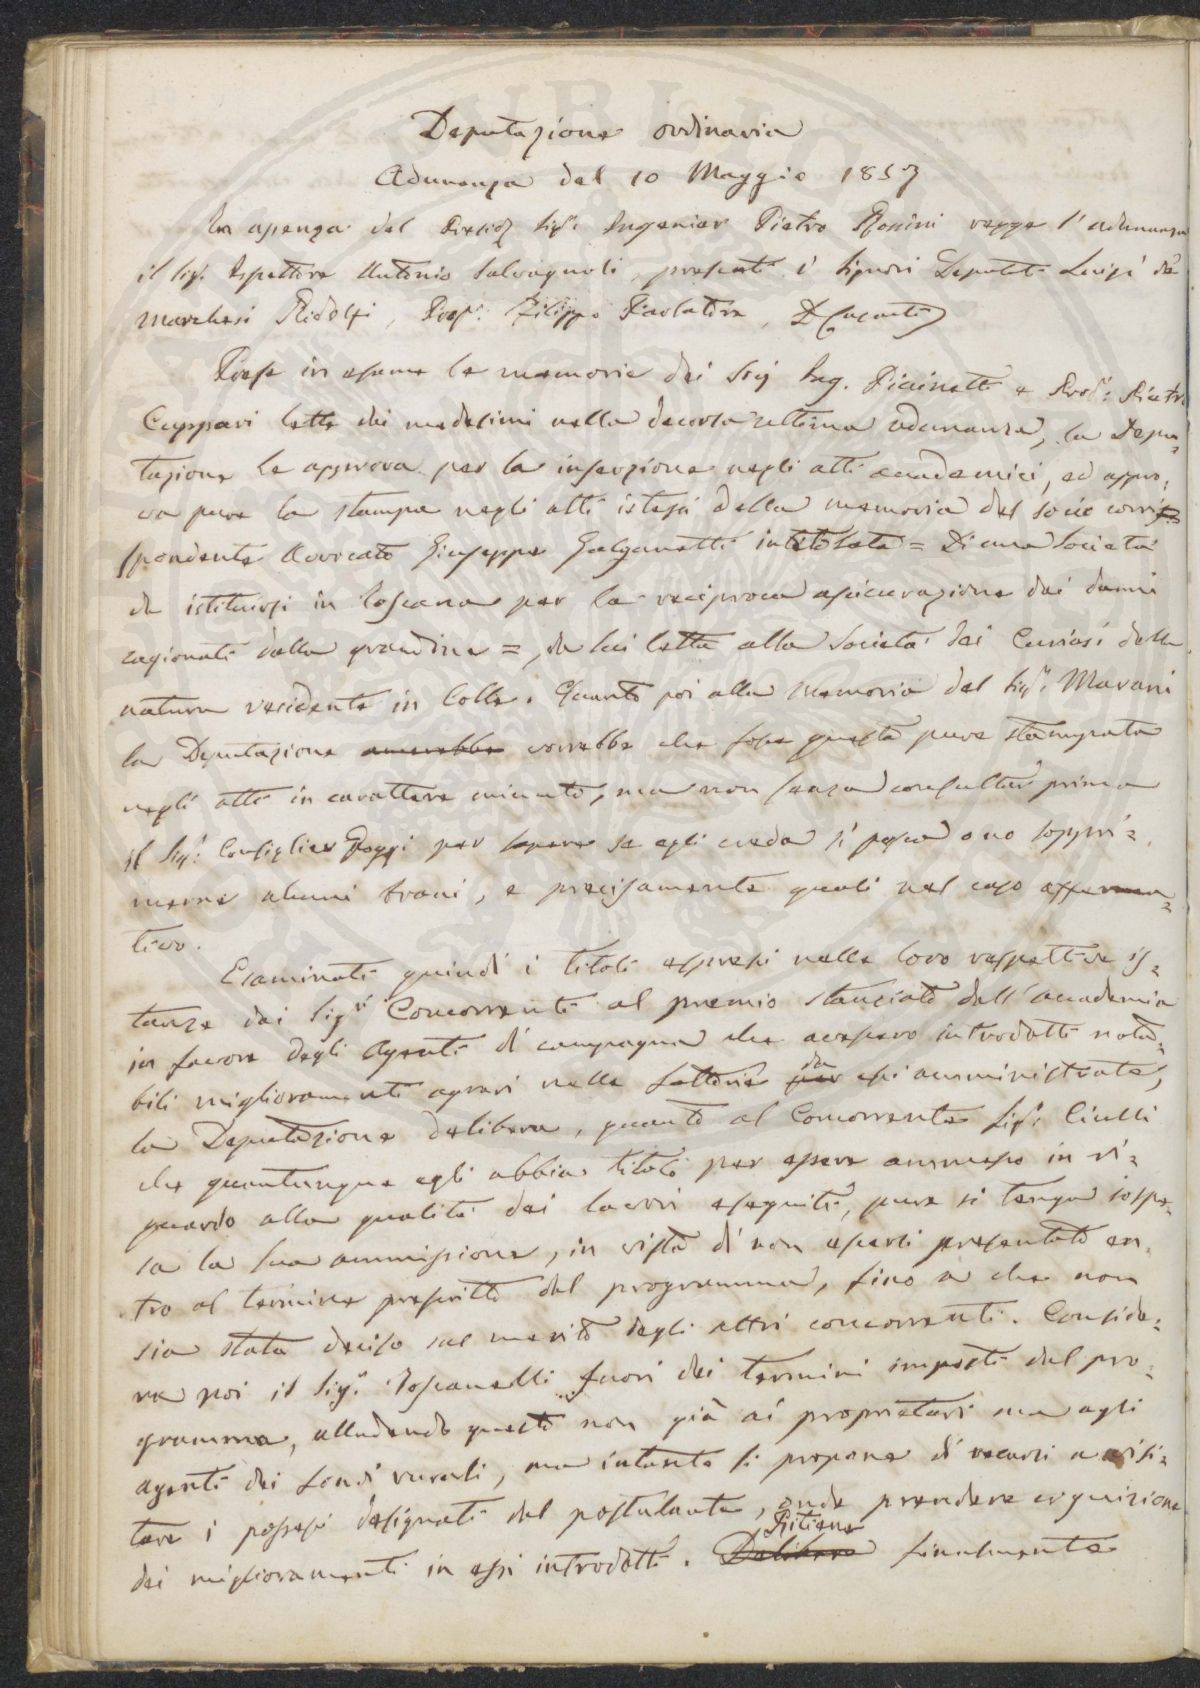 Deputazione ordinaria
Adunanza del 10 Maggio 1857
In assenza del Presid. Sig. Ingenier Pietro Rossini regge l'adunanza
il Sig. Ispettore Antonio Salvagnoli, presenti i Signori Deputati Luigi de'
Marchesi Ridolfi, Prof. Filippo Parlatore,
Prese in esame le memorie dei Sig. Ing. e Prof. Pietro
Cuppari lette dai medesimi nella decorsa ultima adunanza, la Depu=
tazione le approva per la inserzione negli atti accademici, ed appro=
va pure la stampa negli atti istessi della memoria del socio corri
spondente Avvocato Giuseppe Galganetti intitolata = Di una Società
da istituirsi in Toscana per la reciproca assicurazione dai danni
cagionati dalla grandine =, da lui letta alla Società dei Curiosi della
natura residente in Colle. Quanto poi alla Memoria del Sig. Marani
la Deputazione amerebbe vorrebbe che fosse questa pure stampata
negli atti in carattere minuto, ma non senza consultar prima
il Sig. Consiglier Poggi per sapere se egli creda si possa o no soppri=
merne alcuni brani, e precisamente quali nel caso afferma=
tivo.
Esaminati quindi i titoli espressi nelle loro respettive is=
tanze dai Sigri Concorrenti al premio stanziato dall'accademia
in favore degli Agenti di campagna che avessero introdotti nota=
bili miglioramenti agrari nelle fattorie per da essi amministrate,
la Deputazione delibera, quanto al Concorrente Sig. Ciulli
che quantunque egli abbia titoli per essere ammesso in ri=
guardo alla qualità dei lavori eseguiti, pure si tenga sospe=
sa la sua ammissione, in vista di non essersi presentato en=
tro al termine prescritto dal programma, fino a che non
sia stato deciso sul merito degli altri concorrenti. Conside=
ra poi il Sig. Toscanelli fuori dei termini imposti dal pro=
gramma, alludendo questo non già ai proprietari ma agli
agenti dei fondi rurali, ma intanto si propone di recarsi a visi=
tare i possessi designati dal postulante, onde prendere cognizione
dei miglioramenti in essi introdotti. Delibera Ritiene finalmente